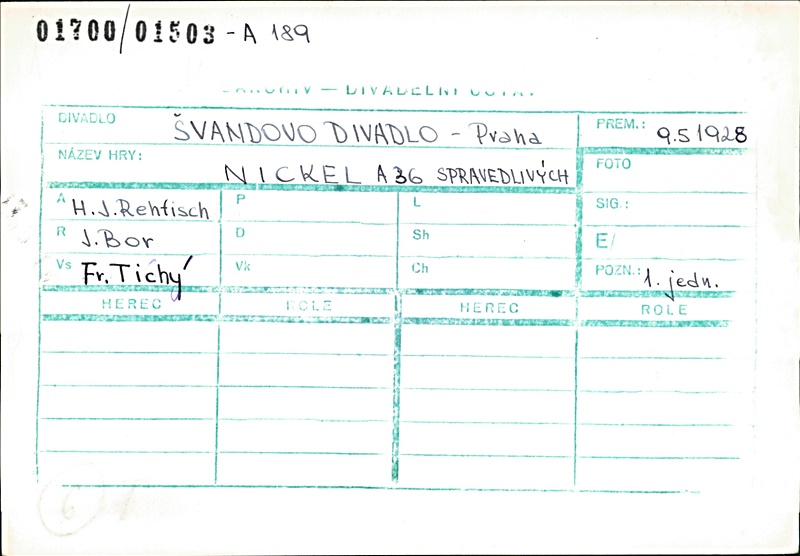 01700/01503 - A 189
DIVADLO ŠVANDOVO DIVADLO - Praha PREM.: 9.5 1928
NÁZEV HRY: NICKEL A 36 SPRAVEDLIVÝCH FOTO
A H.J.Rehfisch P L SIG.:
R J.Bor D Sh E/
Vs Fr.Tichý Vk Ch POZN.: 1. jedn.
HEREC ROLE HEREC ROLE
6